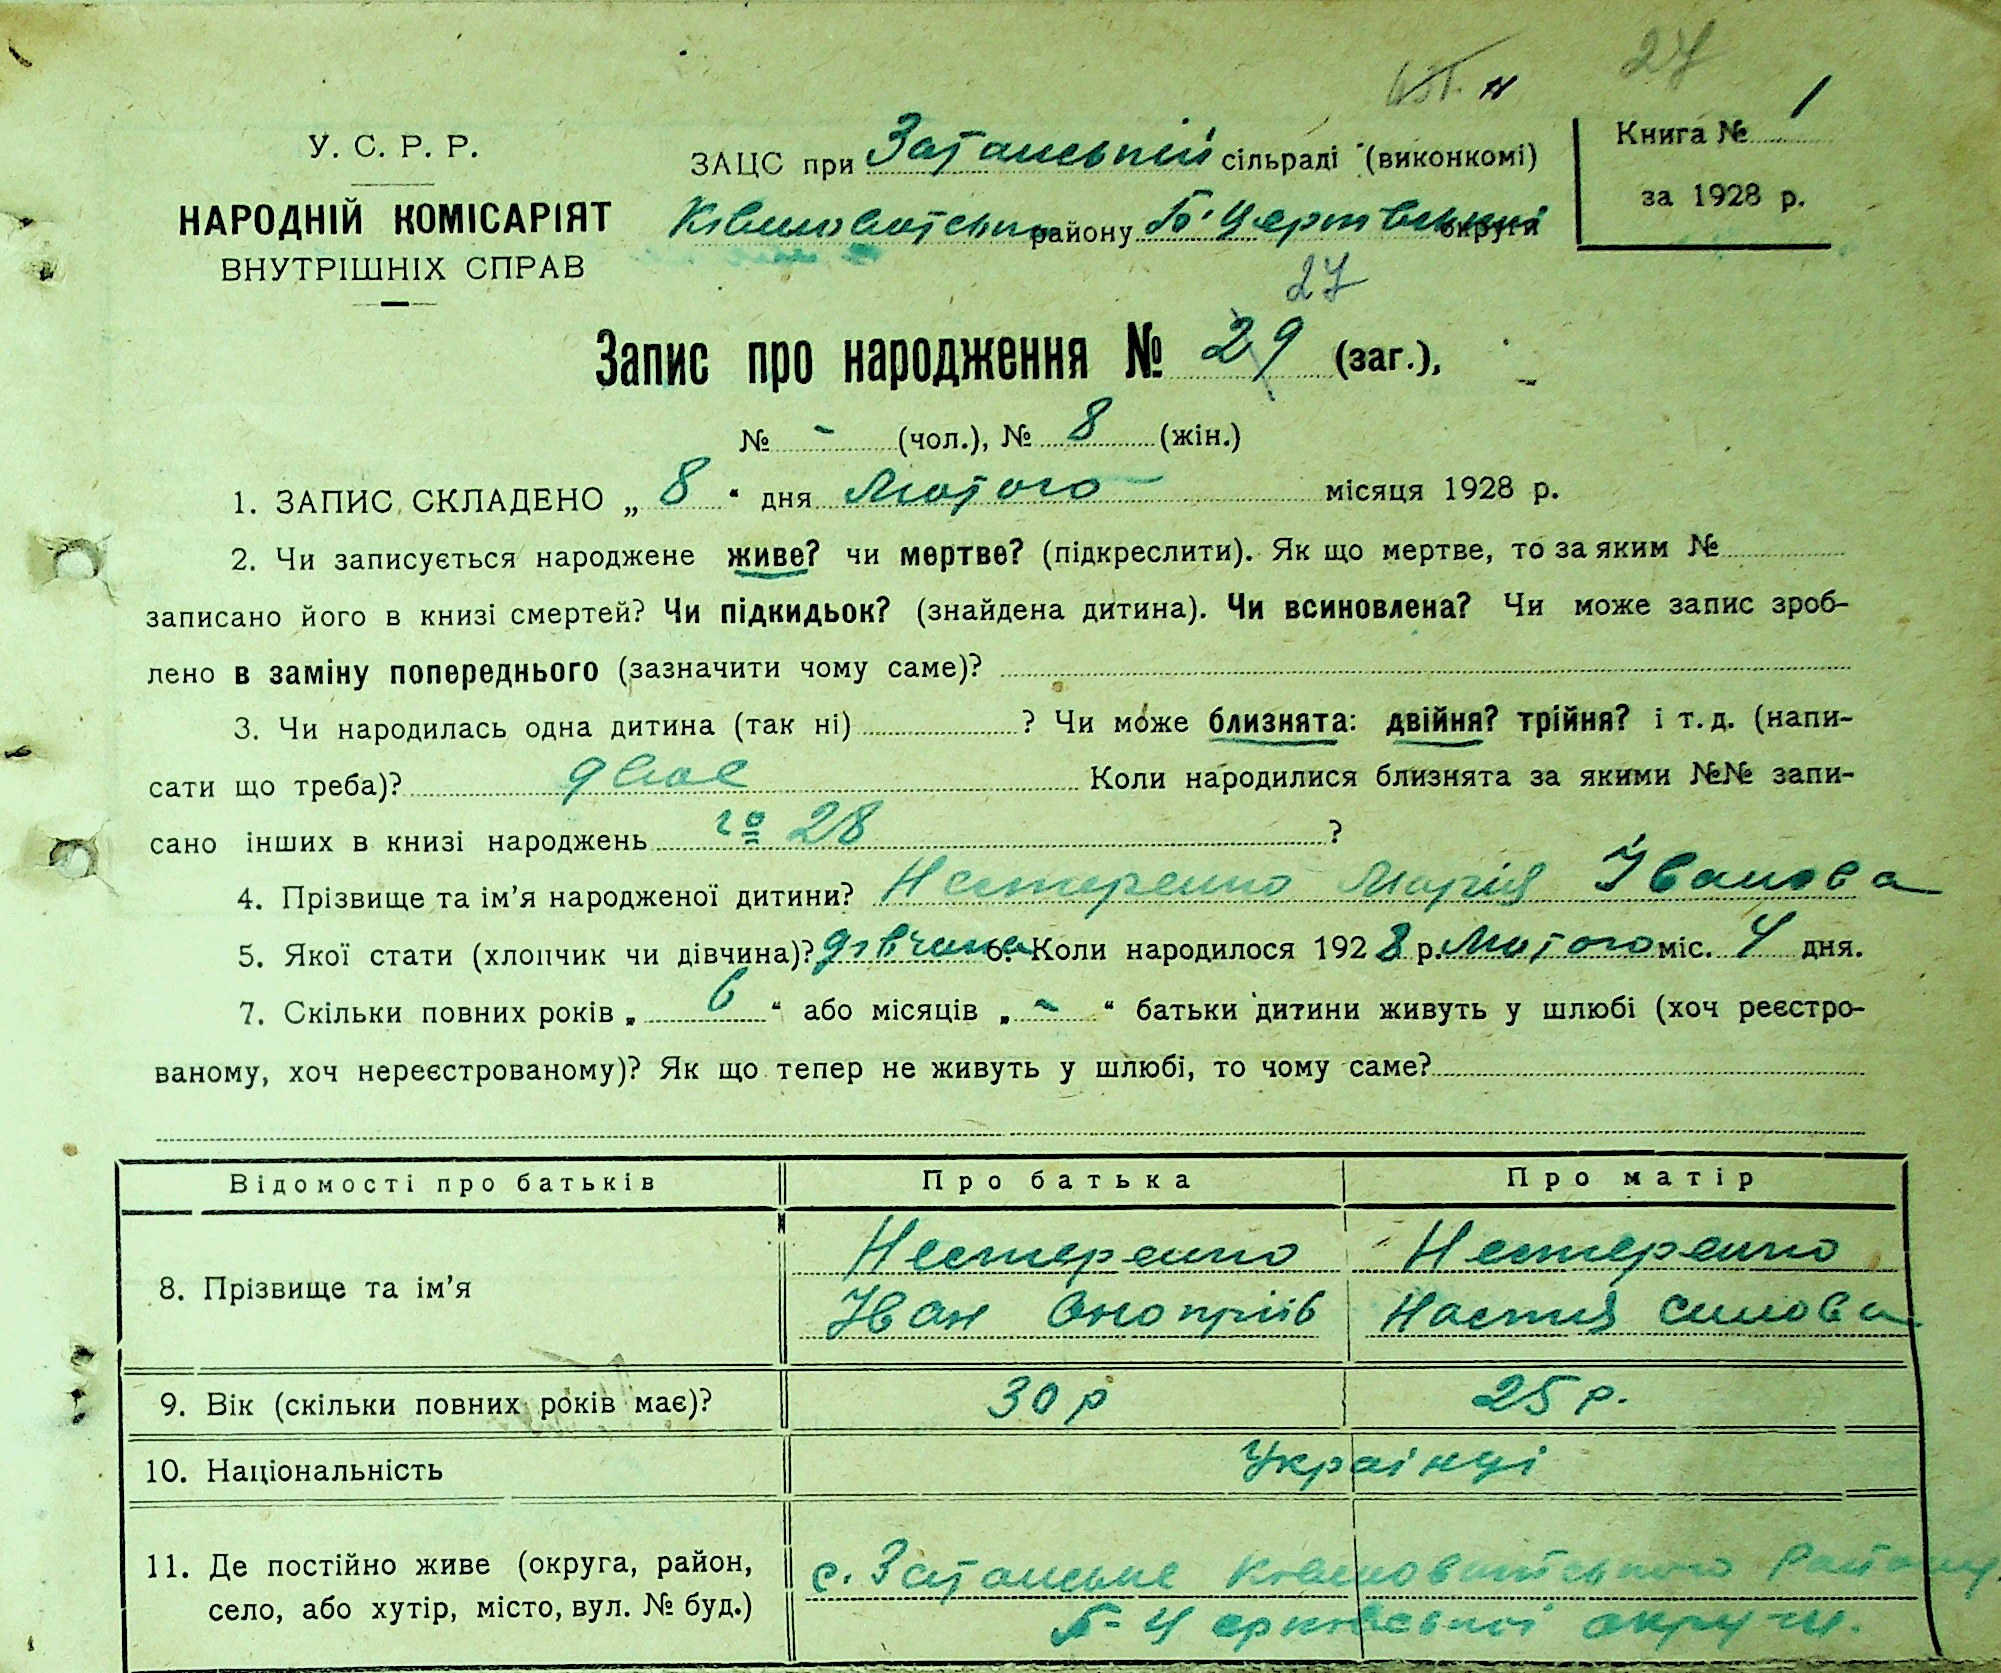 27
У. С. Р. Р.
НАРОДНІЙ КОМІСАРІЯТ
ВНУТРІШНІХ СПРАВ
ЗАЦС при сільраді (виконкомі)
району Б. Церківської округи
Книга № 1
за 1928 р.
27
Запис про народження № 29 (заг.),
№ - (чол.), № 8 (жін.)
1. ЗАПИС СКЛАДЕНО „ 8 “ дня Лютого місяця 1928 р.
2. Чи записується народжене живе? чи мертве? (підкреслити). Як що мертве, то за яким №
записано його в книзі смертей? Чи підкидьок? (знайдена дитина). Чи всиновлена? Чи може запис зроб-
лено в заміну попереднього (зазначити чому саме)?
3. Чи народилась одна дитина (так ні) ? Чи може близнята: двійня? трійня? і т. д. (напи-
сати що треба)? двоє Коли народилися близнята за якими №№ запи-
сано інших в книзі народжень 28 ?
4. Прізвище та ім’я народженої дитини? Нестеренко Марія Іванова
5. Якої стати (хлопчик чи дівчина)? дівчина 6. Коли народилося 1928 р. Лютого міс. 4 дня.
7. Скільки повних років „ 6 “ або місяців „ - “ батьки дитини живуть у шлюбі (хоч реєстро-
ваному, хоч нереєстрованому)? Як що тепер не живуть у шлюбі, то чому саме?
Відомості про батьків Про батька Про матір
8. Прізвище та ім’я
Нестеренко Нестеренко
Іван Оноприїв Настия Силова
9. Вік (скільки повних років має)? 30 р 25 р.
10. Національність Українці
11. Де постійно живе (округа, район,
село, або хутір, місто, вул. № буд.)
с. Району
Б-Церківської округи.